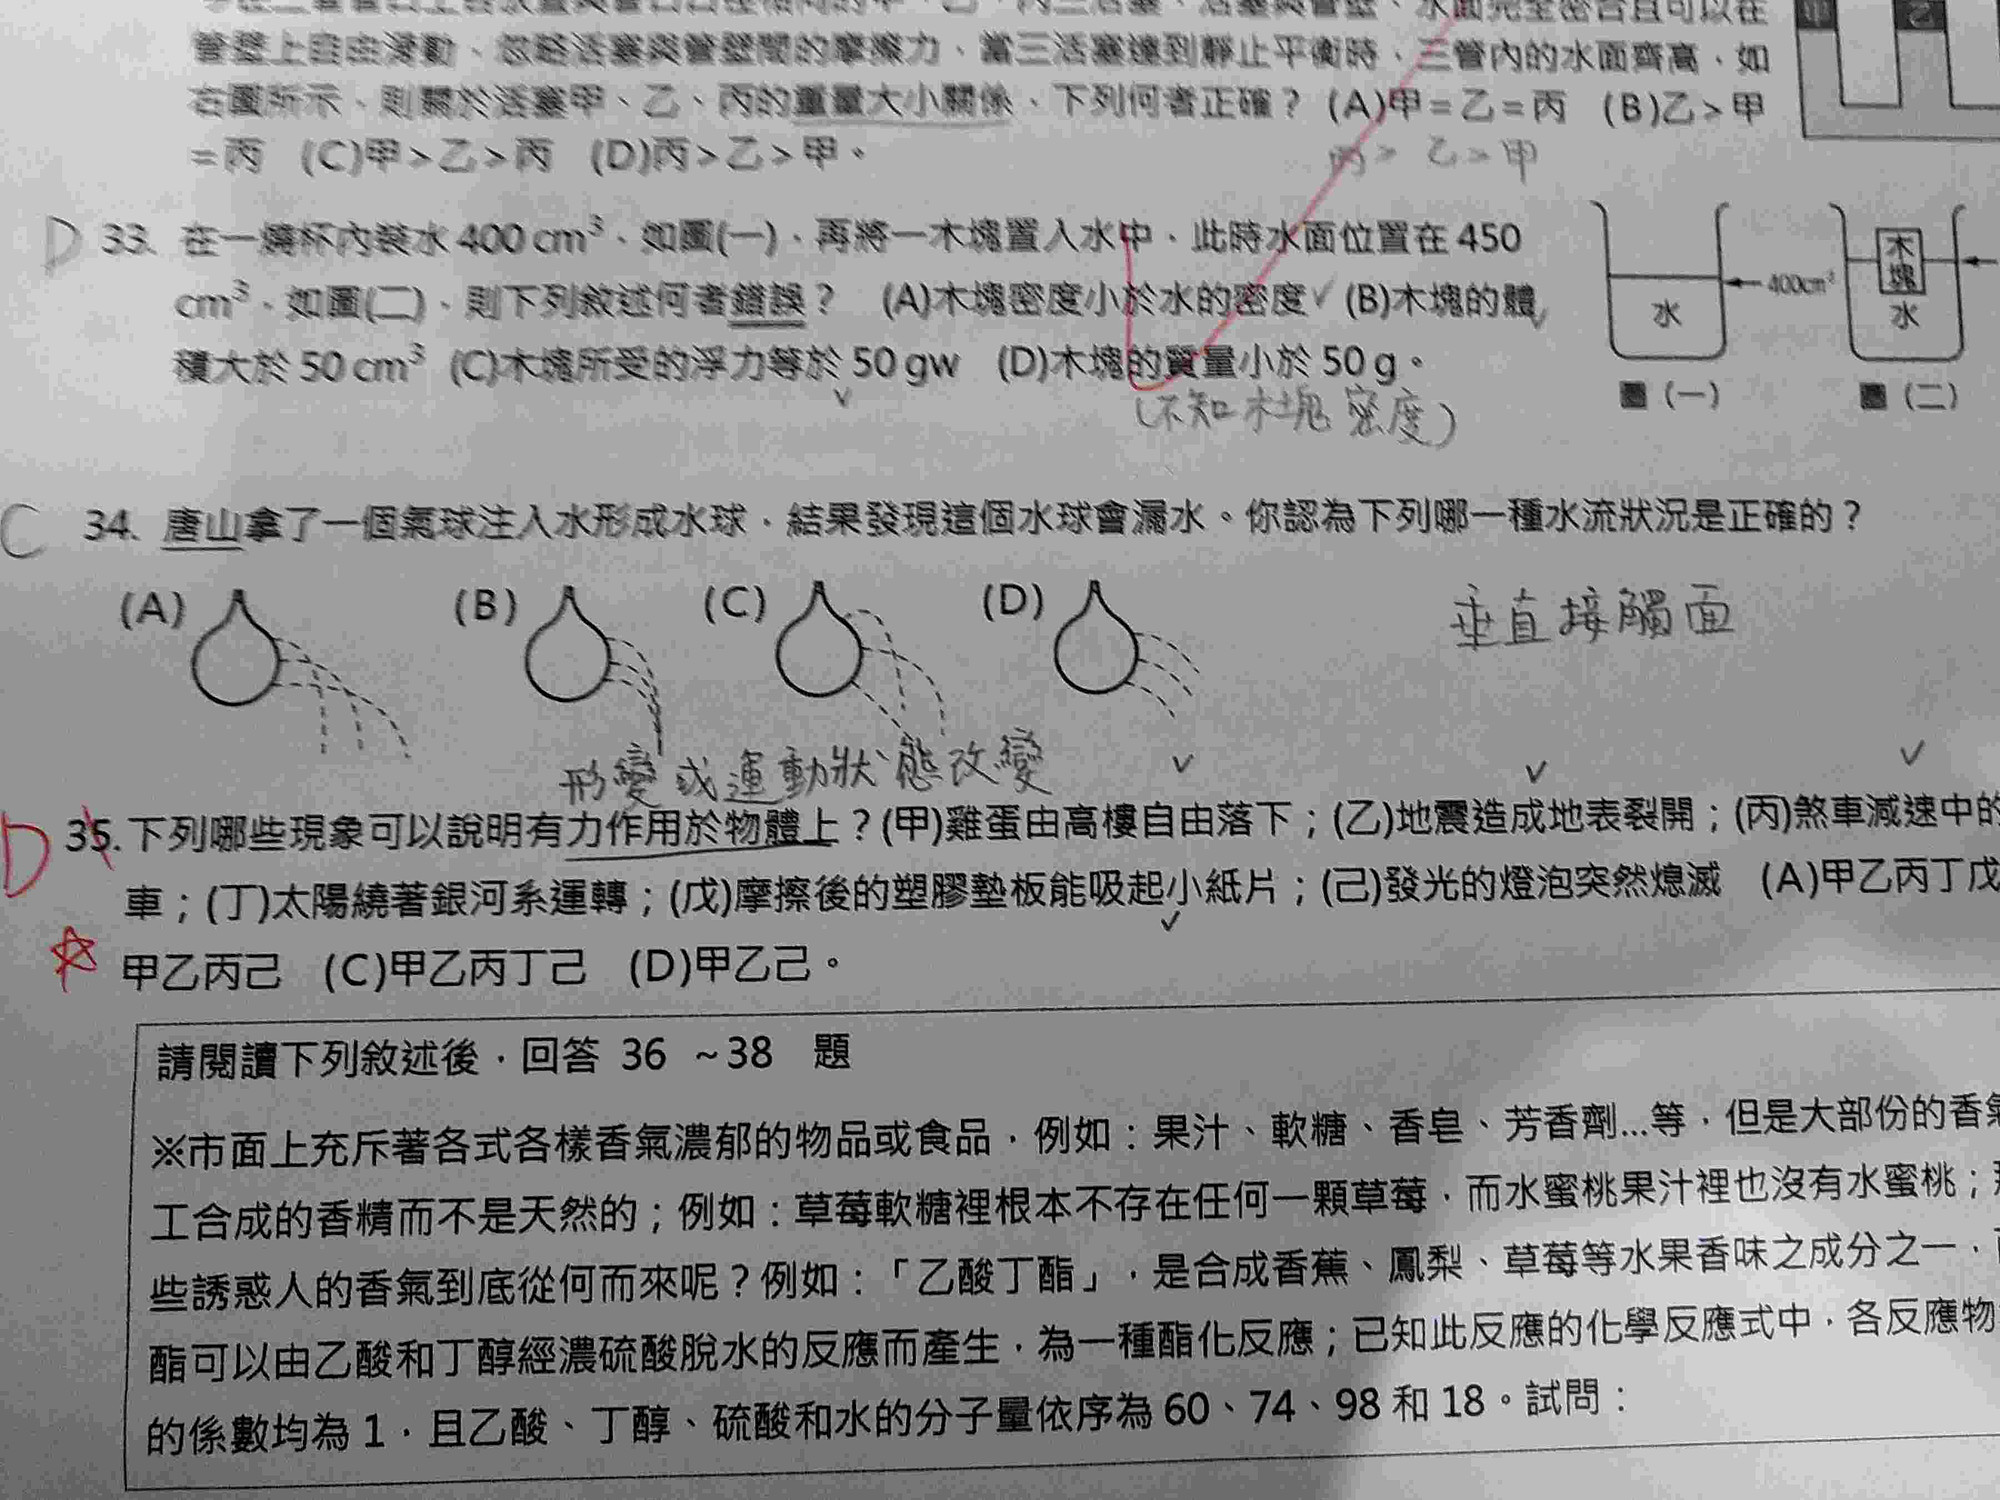 管壁上自由滑動，忽略活塞與管壁間的摩擦力，當三活塞達到靜止平衡時，三管內的水面齊高，如
右圖所示，則關於活塞甲、乙、丙的重量大小關係，下列何者正確？ (A)甲=乙=丙 (B)乙>甲
=丙 (C)甲>乙>丙 (D)丙>乙>甲。
丙> 乙>甲
D 33. 在一燒杯內裝水 400 cm³，如圖(一)，再將一木塊置入水中，此時水面位置在 450
cm³，如圖(二)，則下列敘述何者錯誤？ (A)木塊密度小於水的密度✓ (B)木塊的體
積大於 50 cm³ (C)木塊所受的浮力等於 50 gw (D)木塊的質量小於 50 g。
(不知木塊密度)
水
400cm³
木塊
水
圖 (一)
圖 (二)
C 34. 唐山拿了一個氣球注入水形成水球，結果發現這個水球會漏水。你認為下列哪一種水流狀況是正確的？
(A) (B) (C) (D)
垂直接觸面
形變或運動狀態改變
D 35. 下列哪些現象可以說明有力作用於物體上？(甲)雞蛋由高樓自由落下；(乙)地震造成地表裂開；(丙)煞車減速中的
車；(丁)太陽繞著銀河系運轉；(戊)摩擦後的塑膠墊板能吸起小紙片；(己)發光的燈泡突然熄滅 (A)甲乙丙丁戊
甲乙丙己 (C)甲乙丙丁己 (D)甲乙己。
請閱讀下列敘述後，回答 36 ~38 題
※市面上充斥著各式各樣香氣濃郁的物品或食品，例如：果汁、軟糖、香皂、芳香劑...等，但是大部份的香氣
工合成的香精而不是天然的；例如：草莓軟糖裡根本不存在任何一顆草莓，而水蜜桃果汁裡也沒有水蜜桃；
些誘惑人的香氣到底從何而來呢？例如：「乙酸丁酯」，是合成香蕉、鳳梨、草莓等水果香味之成分之一，
酯可以由乙酸和丁醇經濃硫酸脫水的反應而產生，為一種酯化反應；已知此反應的化學反應式中，各反應物
的係數均為 1，且乙酸、丁醇、硫酸和水的分子量依序為 60、74、98 和 18。試問：